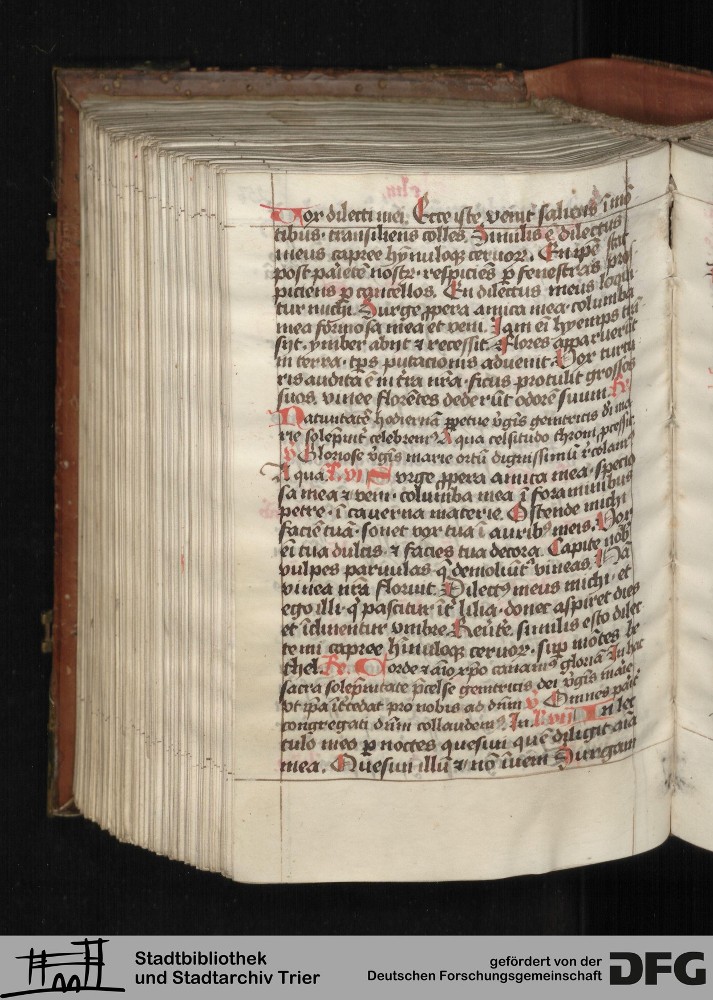 Vox dilecti mei. Ecce iste venit saliens ī mō
tibus· transiliens colles. Similis ē dilectus
meus capree hȳnuloqȝ ceruoꝝ. En ip̄e stat
post pariete nostr̄· respiciēs p̱ fenestras pros
piciens p̱ cancellos. En dilectus meus loqui
tur michi. Surge ꝓpera amica mea· columba
mea formosa mea et veni. Iam ei̅ hyemps trā
sijt· ymber abijt ⁊ recessit. Flores apparuerūt
in terra· tp̄s putacionis aduenit. Vox turtu
ris audita ē in t̄ra nr̄a· ficus protulit grossos
suos. vinee florētes dederūt odorē suum. Re̅
Natiuitatē hodiernā ꝑpetue v̄gis genitricis di ma
rie solēpnit̄ celebrem⁹ A qua celsitudo throni ꝓcessit
v Gloriose v̄gis marie ortū dignissimū r̄colam⁹
A qua. L. vi Surge ꝓpera amica mea· specio
sa mea ⁊ veni· columba mea ī foraminibus
petre· ī cauerna materie. Ostende michi
faciē tuā· sonet vox tua ī aurib⁹ meis. Vox
ei̅ tua dulcis· ⁊ facies tua decora. Capite nob̄
vulpes paruulas q̄ demoliūt̄ vineas. Nā
vinea nr̄a floruit. Dilect⁹ meus michi· et
ego illi· q̄ pascitur īt̄ lilia· donec aspiret dies
et īclinentur vmbre. Reūte. similis esto dilec
te mi capree hīnuloqȝ ceruoꝝ· sup̱ mōtes be
thel. Re̅. Corde ⁊ aīo xp̄o canam⁹ gloriā In hac
sacra solēpnitate p̄celse genitricis dei v̄gis marie
v̄t ip̄a īt̄cedat pro nobis ad dn̄m v Omnes parit̄
congregati dn̄m collaudem⁹. In. L. vij In lec
tulo meo p̱ noctes quesiui quē diligit aīā
mea. Quesiui illū ⁊ nō īueni Surgam
Stadtbibliothek
und Stadtarchiv Trier
gefördert von der
Deutschen Forschungsgemeinschaft
DFG